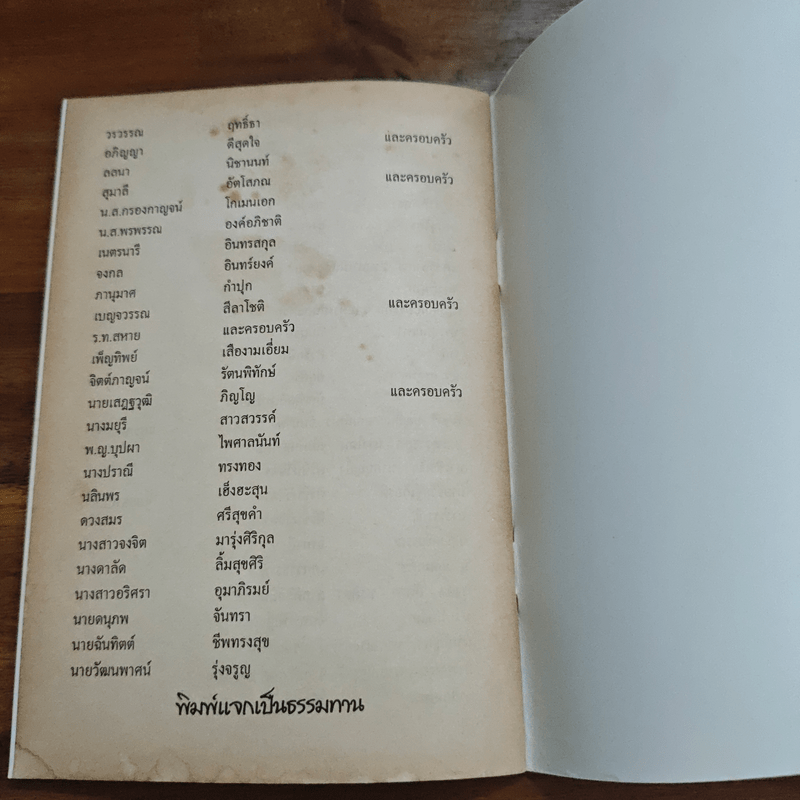 วรวรรณ ฤทธิ์ธา
อภิญญา ดีสุดใจ และครอบครัว
ลลนา นิชานนท์
สุมาลี อัตโสภณ และครอบครัว
น.ส.กรองกาญจน์ โกเมนเอก
น.ส.พรพรรณ องค์อภิชาติ
เนตรนารี อินทรสกุล
จงกล อินทร์ยงค์
ภานุมาศ กำปุก
เบญจวรรณ สีลาโชติ และครอบครัว
ร.ท.สหาย และครอบครัว
เพ็ญทิพย์ เสืองามเอี่ยม
จิตต์ภาญจน์ รัตนพิทักษ์
นายเสฎฐวุฒิ ภิญโญ และครอบครัว
นางมยุรี สาวสวรรค์
พ.ญ.บุปผา ไพศาลนันท์
นางปราณี ทรงทอง
นลินพร เฮ็งฮะสุน
ดวงสมร ศรีสุขคำ
นางสาวจงจิต มารุ่งศิริกุล
นางดาลัด ลิ้มสุขศิริ
นางสาวอริศรา อุมาภิรมย์
นายดนุภพ จันทรา
นายฉันทิตต์ ชีพทรงสุข
นายวัฒนพาศน์ รุ่งจรูญ
พิมพ์แจกเป็นธรรมทาน